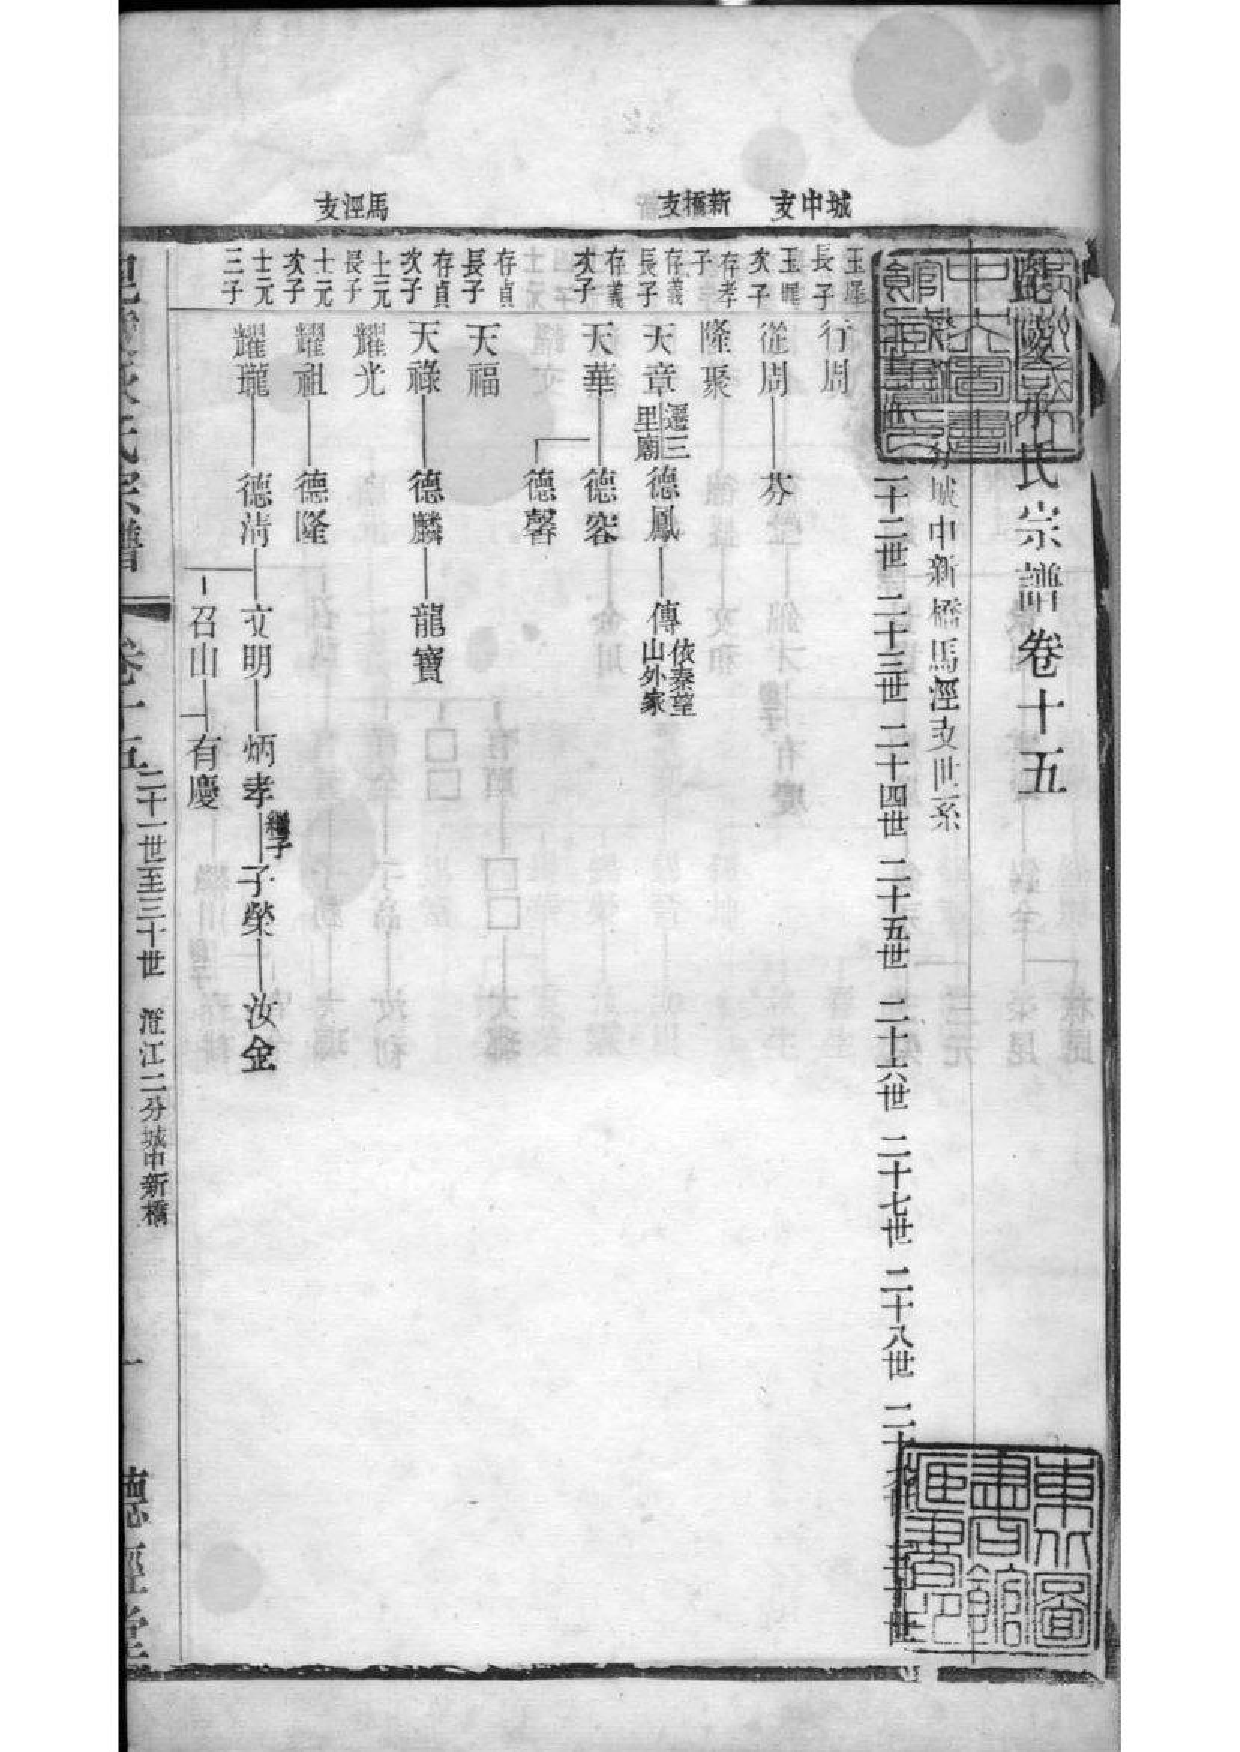 毘陵承氏宗譜卷十五
分城中新橋馬涇支世系
二十二世 二十三世 二十四世 二十五世 二十六世 二十七世 二十八世 二十 世 三十世
城中支
長子
行周
玉暉
次子
從周
芬
新橋支
存孝
子
隆聚
存義
長子
天章
遷三
里廟
德鳳
傳
依秦望
山外家
存義
次子
天華
德容
德馨
馬涇支
存貞
長子
天福
存貞
次子
天祿
德麟
龍寶
士元
長子
耀光
士元
次子
耀祖
德隆
士元
三子
耀瓏
德清
文明
炳孝
繼子
子榮
汝金
召山
有慶
氏宗譜
卷十五
二十一世至三十世
澄江二分城中新橋
一
德經堂
東北圖
書館